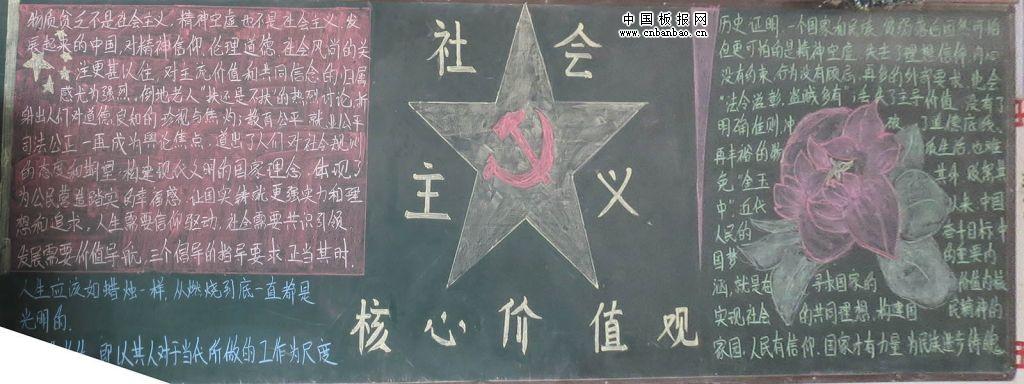 中国板报网
www.cnbanbao.cn
物质贫乏不是社会主义,精神空虚也不是社会主义,发
展起来的中国,对精神信仰、伦理道德、社会风尚的关
注更甚以往,对主流价值和共同信念的归属
感尤为强烈,倒地老人"扶还是不扶"的热烈讨论,折
射出人们对道德良知的珍视与焦灼;教育公平、就业公平
司法公正一再成为舆论焦点,道出了人们对社会规则
的态度和期望,构建现代文明的国家理念,体现了
为公民营造踏实的幸福感,让国实铸就更强实力和理
想和追求,人生需要信仰驱动,社会需要共识引领
发展需要价值导航,三个倡导的指导要求正当其时.
人生应该如蜡烛一样,从燃烧到底一直都是
光明的.
即以其人对于当代所做的工作为尺度
社会
主义
核心价值观
历史证明,一个国家和民族,贫穷落后固然可怕
但更可怕的是精神空虚,失去了理想信仰,内心
没有约束,行为没有顾忌,再多的外或要求,也会
"法令滋彰,盗贼多有";丧失了主导价值,没有了
明确准则,冲破了道德底线,
再丰裕的物质生活,也难
免"金玉其外,败絮其
中".近代以来,中国
人民的奋斗目标中
国梦的重要内
涵,就是在寻求国家的价值内核
实现社会的共同理想,构建国民精神的
家园.人民有信仰,国家才有力量